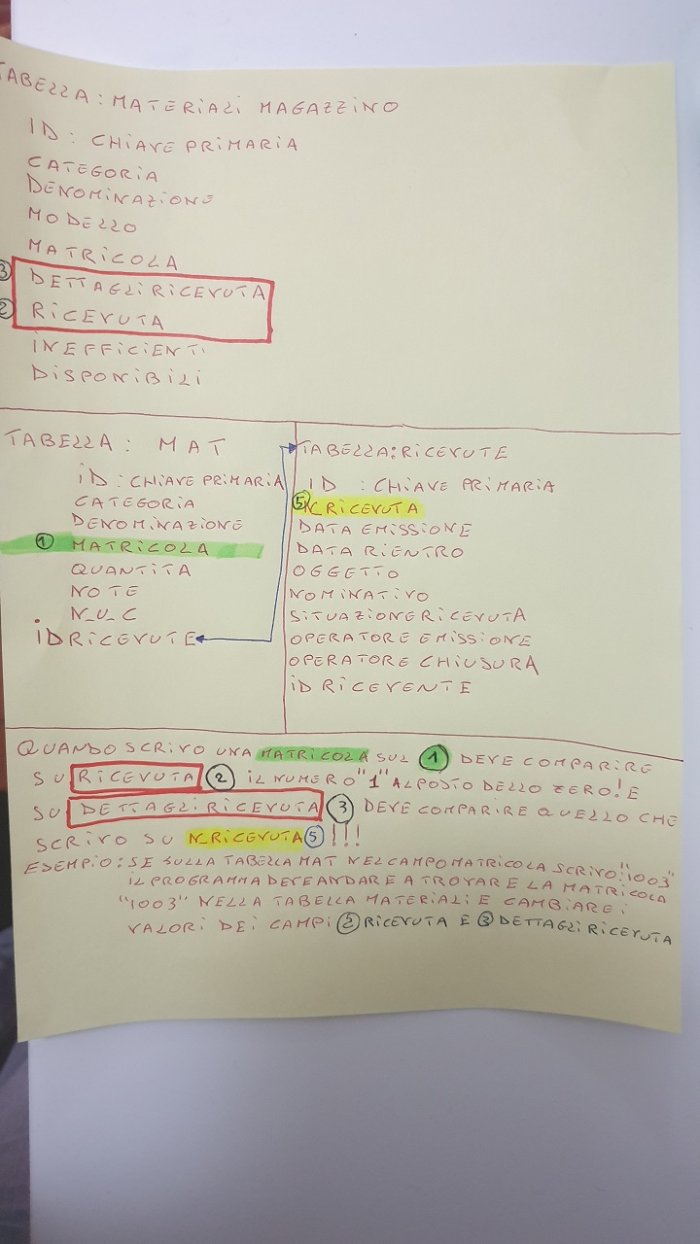 TABELLA: MATERIALI MAGAZZINO
ID: CHIAVE PRIMARIA
CATEGORIA
DENOMINAZIONE
MODELLO
MATRICOLA
3 DETTAGLI RICEVUTA
2 RICEVUTA
INEFFICIENTI
DISPONIBILI
TABELLA: MAT
ID: CHIAVE PRIMARIA
CATEGORIA
DENOMINAZIONE
1 MATRICOLA
QUANTITA
NOTE
N_U_C
ID RICEVUTE
TABELLA: RICEVUTE
ID : CHIAVE PRIMARIA
5 N_RICEVUTA
DATA EMISSIONE
DATA RIENTRO
OGGETTO
NOMINATIVO
SITUAZIONE RICEVUTA
OPERATORE EMISSIONE
OPERATORE CHIUSURA
ID RICEVENTE
QUANDO SCRIVO UNA MATRICOLA SUL 1 DEVE COMPARIRE
SU RICEVUTA 2 IL NUMERO "1" AL POSTO DELLO ZERO! E
SU DETTAGLI RICEVUTA 3 DEVE COMPARIRE QUELLO CHE
SCRIVO SU N_RICEVUTA 5 !!!
ESEMPIO: SE SULLA TABELLA MAT NEL CAMPO MATRICOLA SCRIVO: "1003"
IL PROGRAMMA DEVE ANDARE A TROVARE LA MATRICOLA
"1003" NELLA TABELLA MATERIALI E CAMBIARE I
VALORI DEI CAMPI 2 RICEVUTA E 3 DETTAGLI RICEVUTA